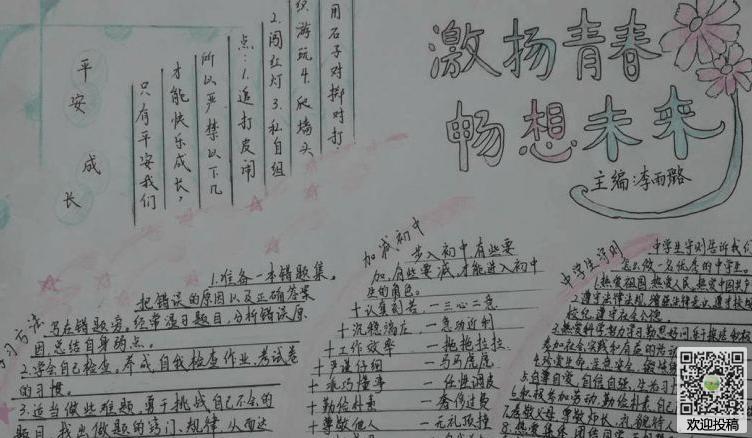 激扬青春
畅想未来
主编:李雨璐
平安成长
只有平安我们
才能快乐成长,
所以严禁以下几
点:1.追打皮闹
2.闯红灯 3.私自组
织游玩 4.爬墙头
用石子对掷对打
学习方法
1.准备一本错题集。
把错误的原因以及正确答案
写在错题旁,经常温习题目,分析错误原
因,总结自身弱点。
2.学会自己检查,养成自我检查作业、考试卷
的习惯。
3.适当做些难题,勇于挑战自己不会的
题目,找出做题的窍门、规律,从而达
加减初中
步入初中有些要
加,有些要减,才能进入初中
生的角色。
+认真刻苦 一三心二意
+沉稳踏实 一急功近利
+工作效率 一拖拖拉拉
+严谨仔细 一马马虎虎
+乖巧懂事 一任性调皮
+勤俭朴素 一奢侈过费
+尊敬他人 一无礼顶撞
中学生守则
中学生守则告诉我们
怎么做一名优秀的中学生。
1.热爱祖国,热爱人民,热爱中国共产
2.遵守法律法规,增强法律意识,遵守校
校纪,遵守社会公德。
3.热爱科学,努力学习,勤思好问,乐于探究,积极
参加社会实践和有益的活动
4.珍爱生命,注意安全,锻炼
5.自尊自爱,自信自强,生活习
6.积极参加劳动,勤俭朴素,自己
7.孝敬父母,尊敬师长,礼貌待人
8.热爱集体,团结同学
欢迎投稿